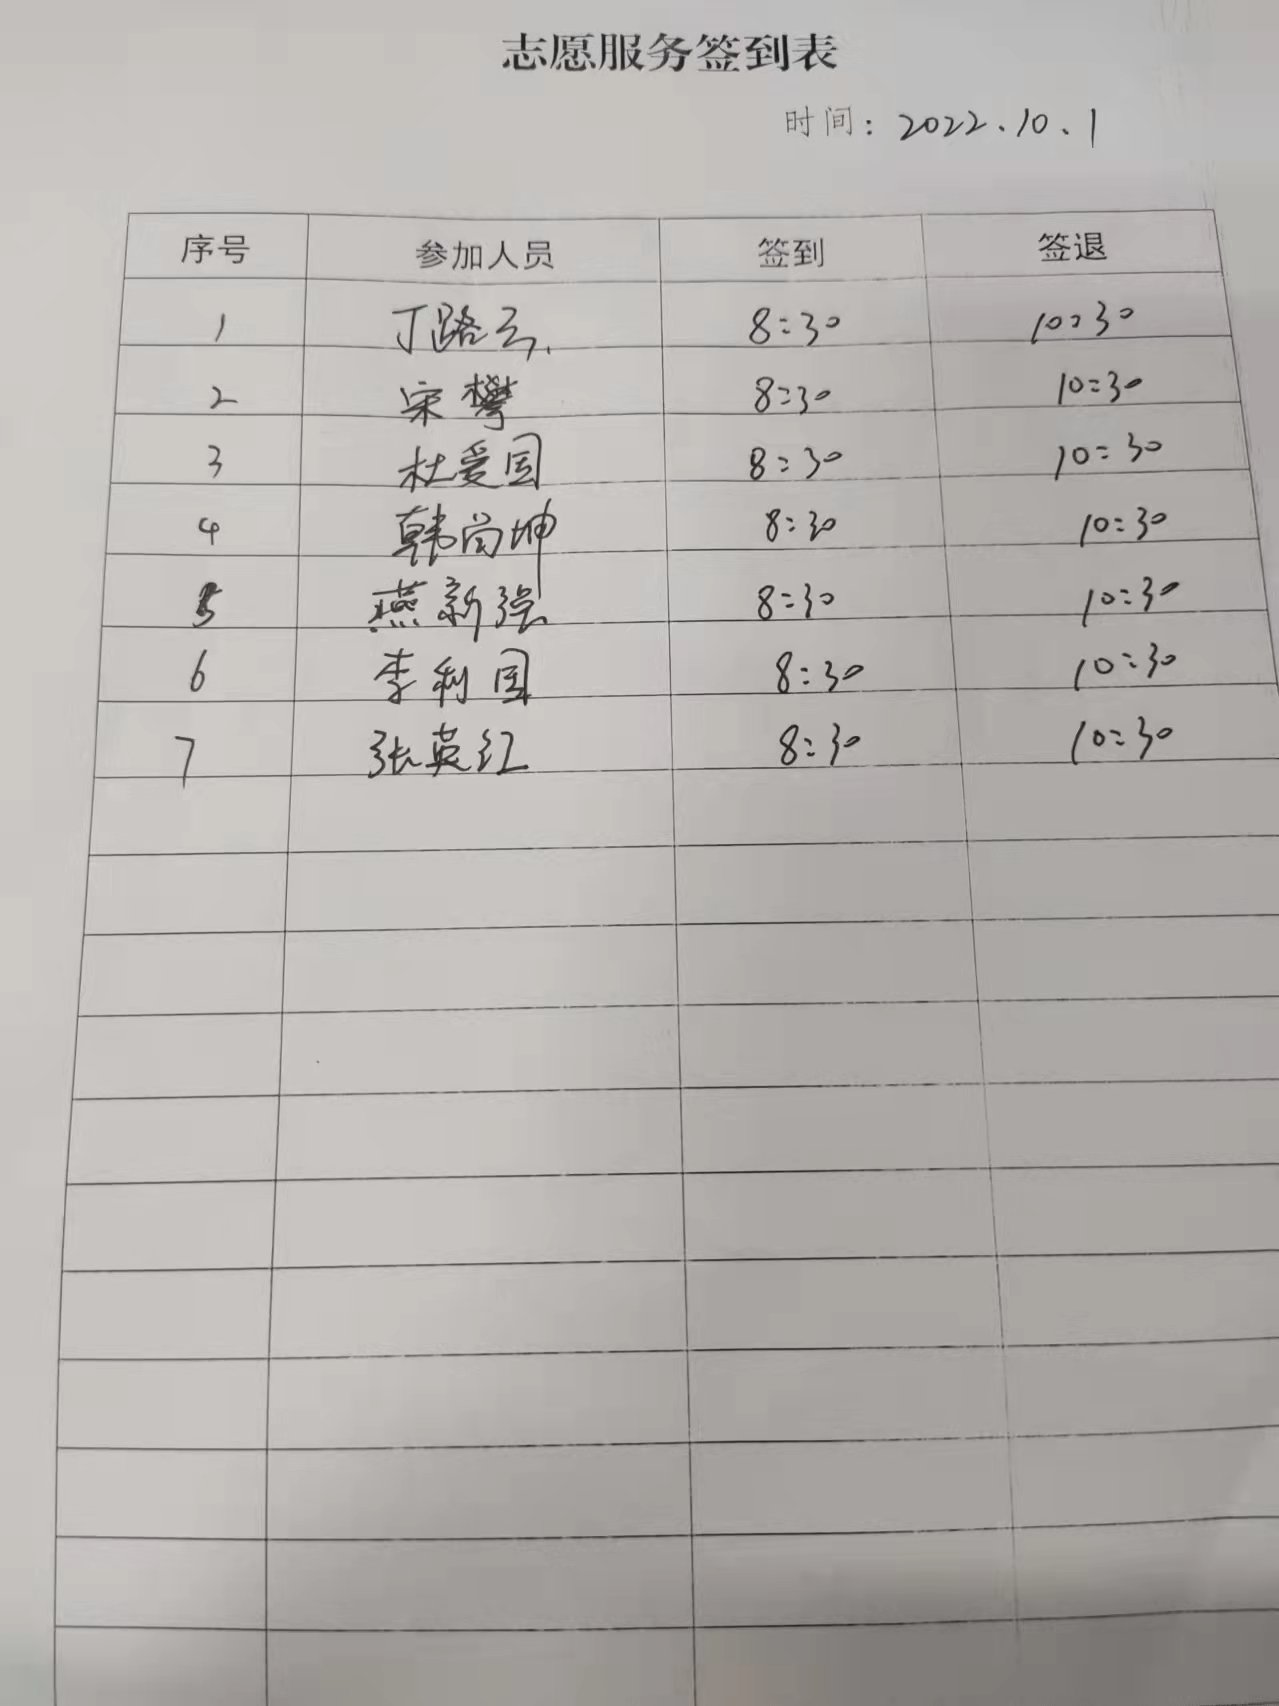 志愿服务签到表
时间: 2022.10.1
序号 参加人员 签到 签退
1 丁路云 8:30 10:30
2 宋攀 8:30 10:30
3 杜爱国 8:30 10:30
4 韩尚坤 8:30 10:30
5 燕新强 8:30 10:30
6 李利国 8:30 10:30
7 张英红 8:30 10:30